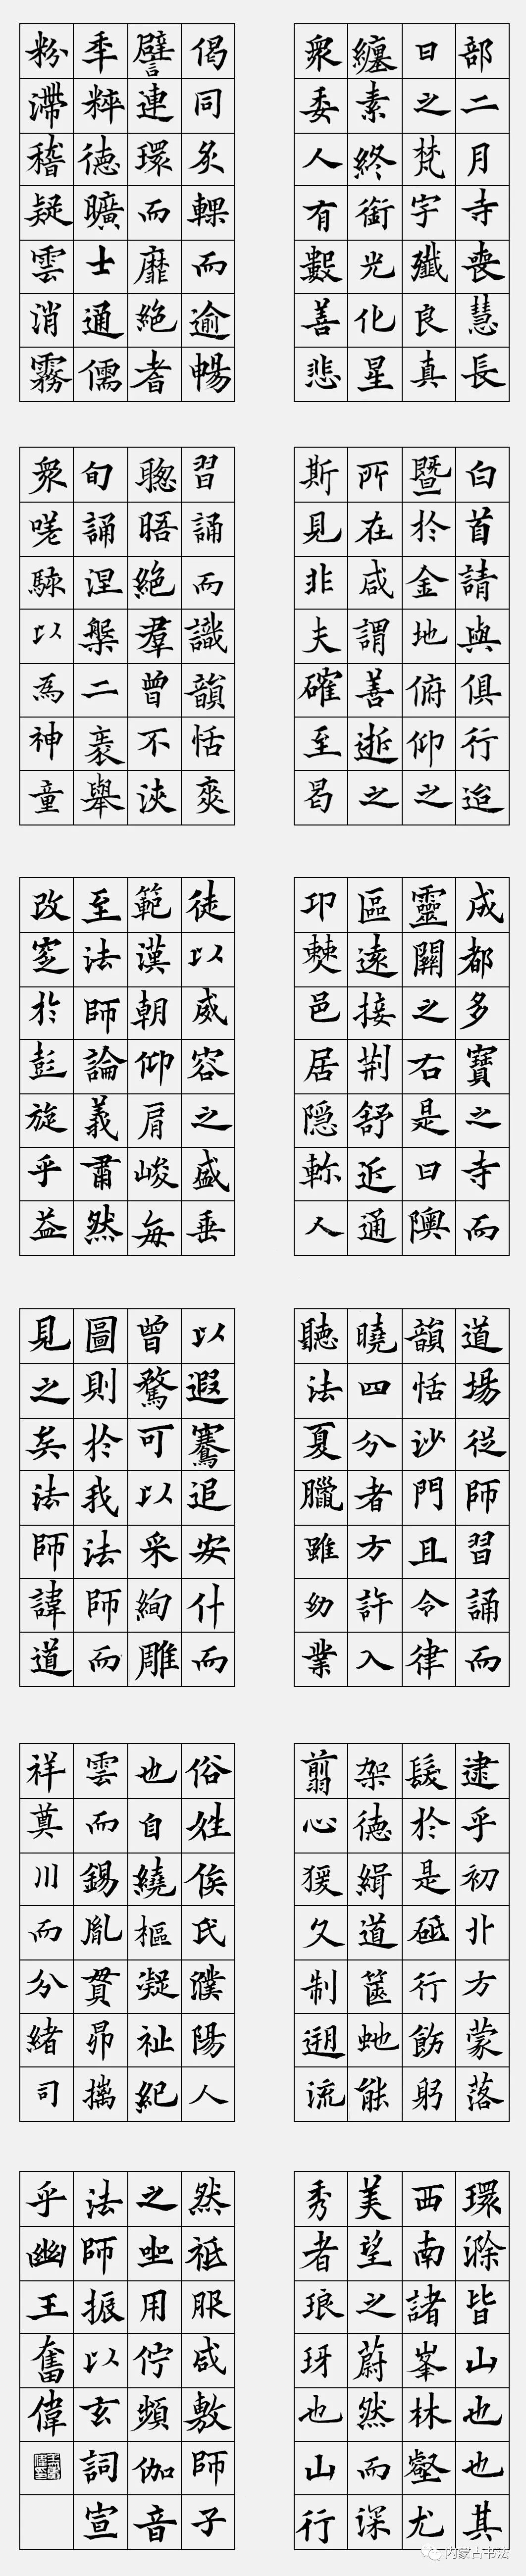 部二月寺喪慧長
日之梵字殲良真
纏素終銜光化星
眾委人有毅善悲
偈同炙輠而逾暢
譬連環而靡絕者
季粹德曠士通儒
粉滯稽疑雲消霧
白首請與俱行迨
暨於金地俯仰之
所在咸謂善逝之
斯見非夫確至曷
習誦而識韻恬爽
聰晤絕羣曾不浹
旬誦涅槃二袠舉
眾嗟駭以為神童
成都多寶之寺而
靈關之右是曰隩
區遠接荊舒近通
邛僰邑居隱軫人
徒以威容之盛垂
範漢朝仰肩峻每
至法師論義肅然
改窆於彭旋乎益
道場從師習誦而
韻恬沙門且令律
曉四分者方許入
聽法夏臘雖幼業
以遐騫追安什而
曾騖可以采絢雕
圖則於我法師而
見之矣法師諱道
逮乎初北方蒙落
髮於是砥行飭躬
架德緝道篋虵能
翦心猨久制遡流
俗姓侯氏濮陽人
也自繞樞凝祉紀
雲而錫胤貫昴摛
祥奠川而分緒司
環滁皆山也也其
西南諸峯林壑尤
美望之蔚然而深
秀者琅玡也山行
然祗服咸敷師子
之坐用佇頻伽音
法師振以玄詞宣
乎幽王奮偉
内蒙古书法